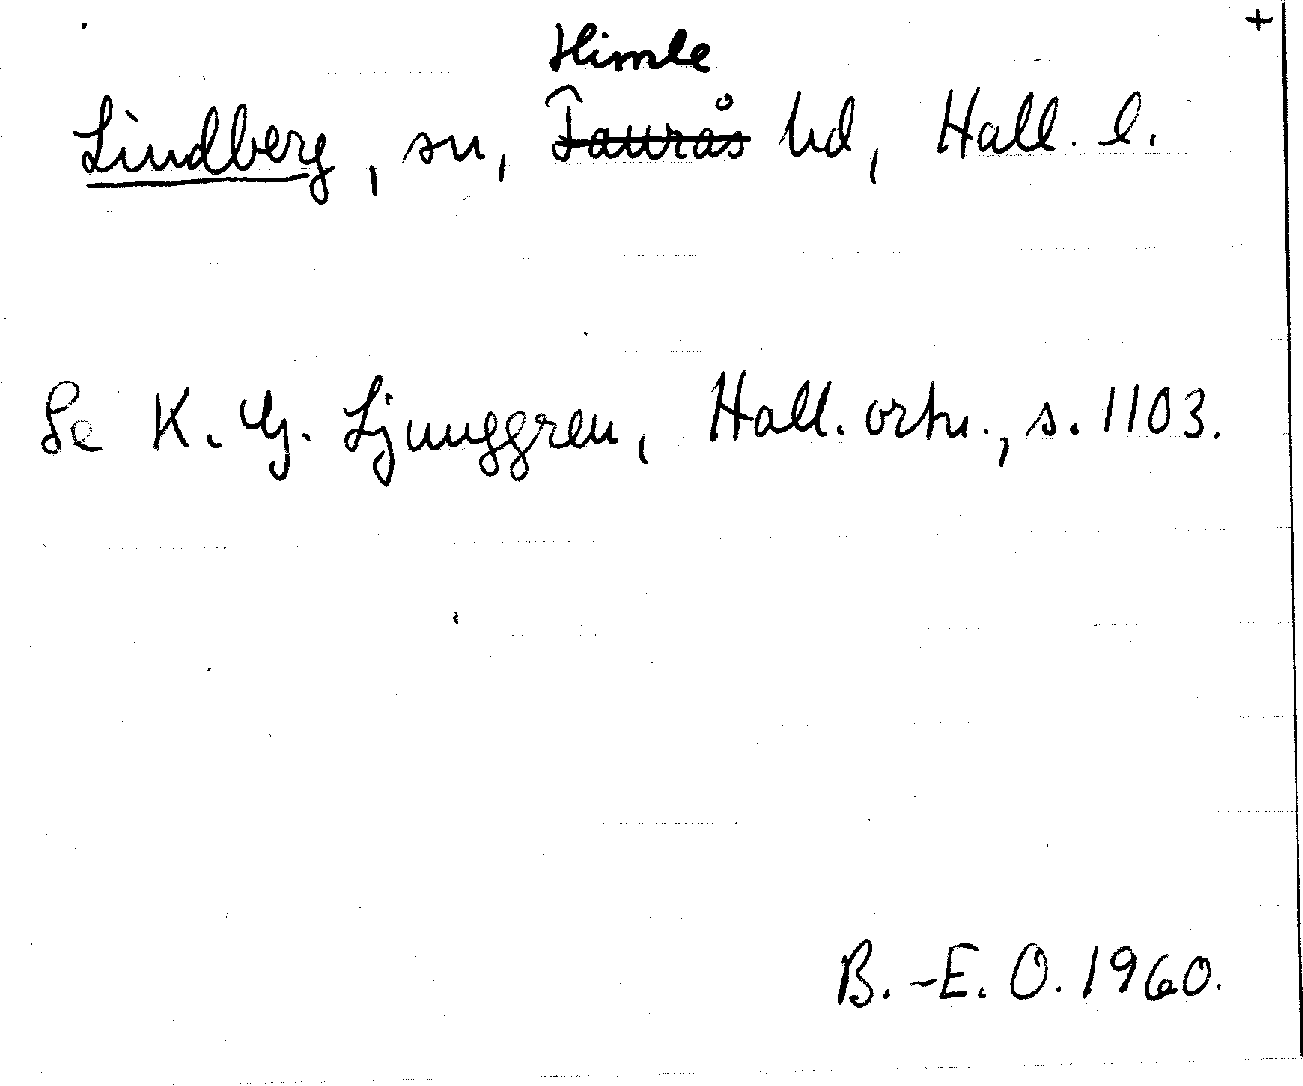 +
Himle
Lindberg, sn, Faurås hd, Hall. l.
Se K. G. Ljunggren, Hall. ortn., s. 1103.
B.-E. O. 1960.